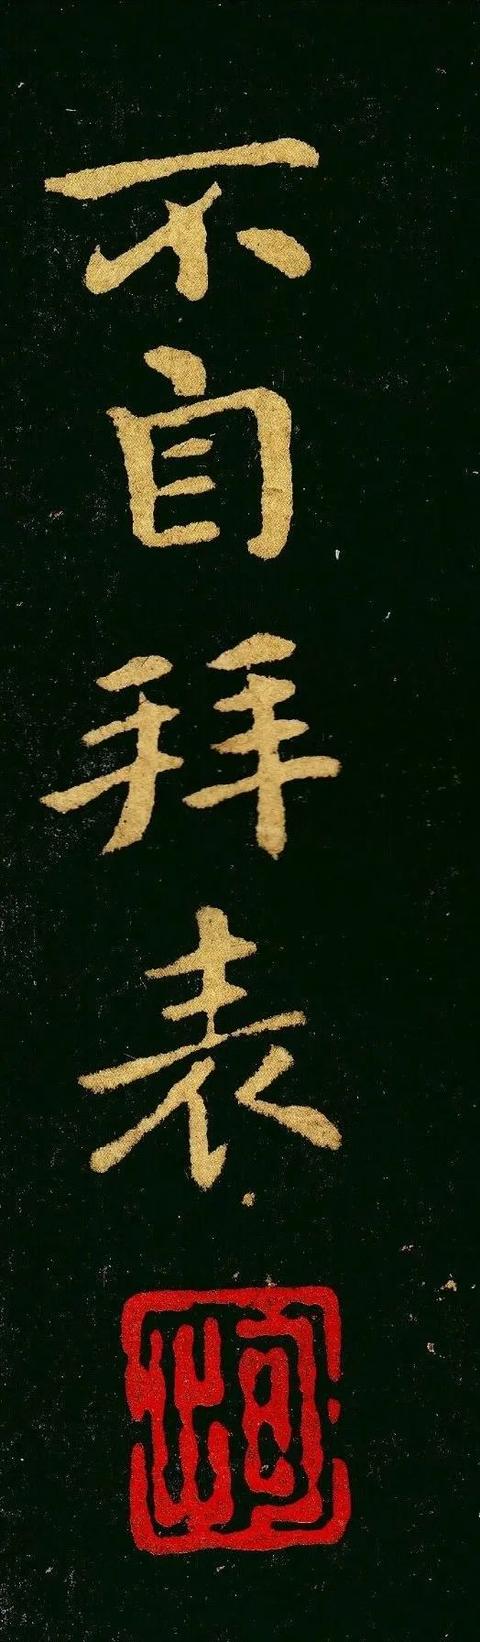 不自拜表